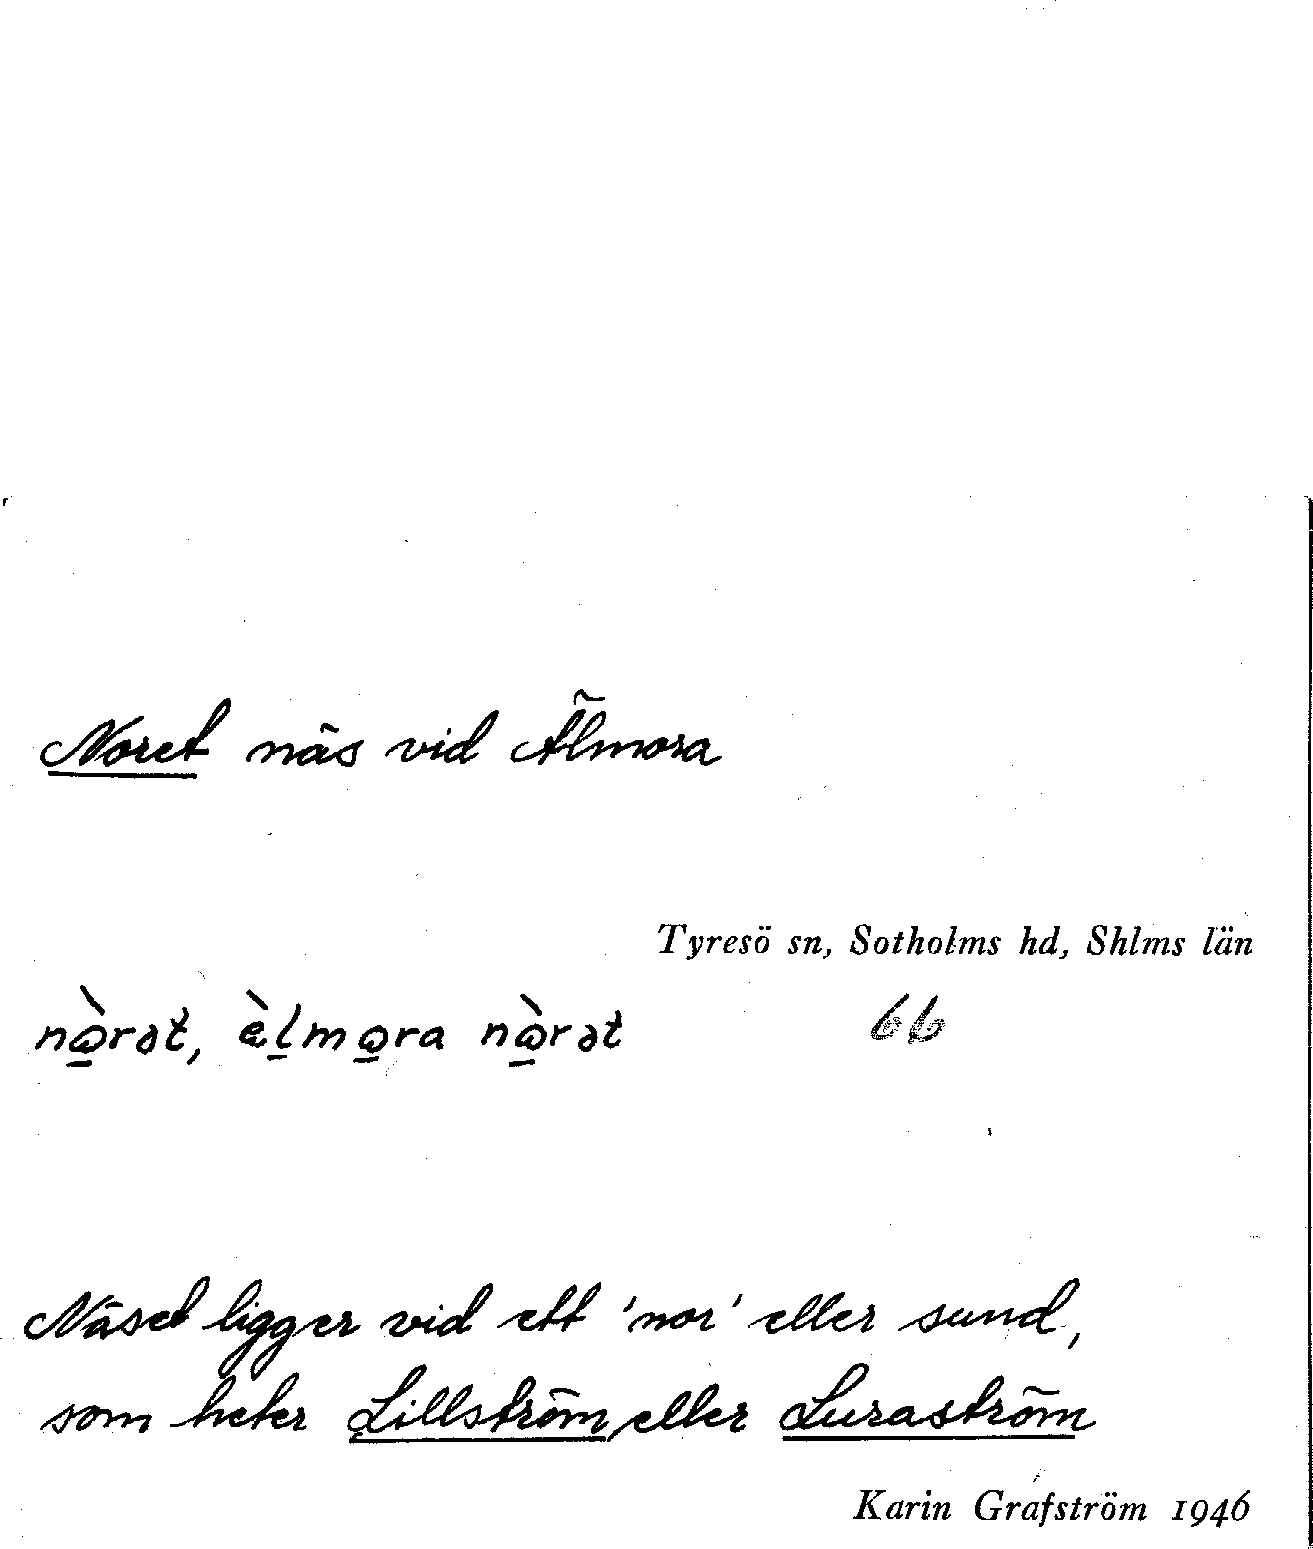 Noret näs vid Älmora
Tyresö sn, Sotholms hd, Shlms län
nò̱rət, èḻmo̱ra nò̱rət 66
Näset ligger vid ett 'nor' eller sund,
som heter Lillström, eller Luraström
Karin Grafström 1946